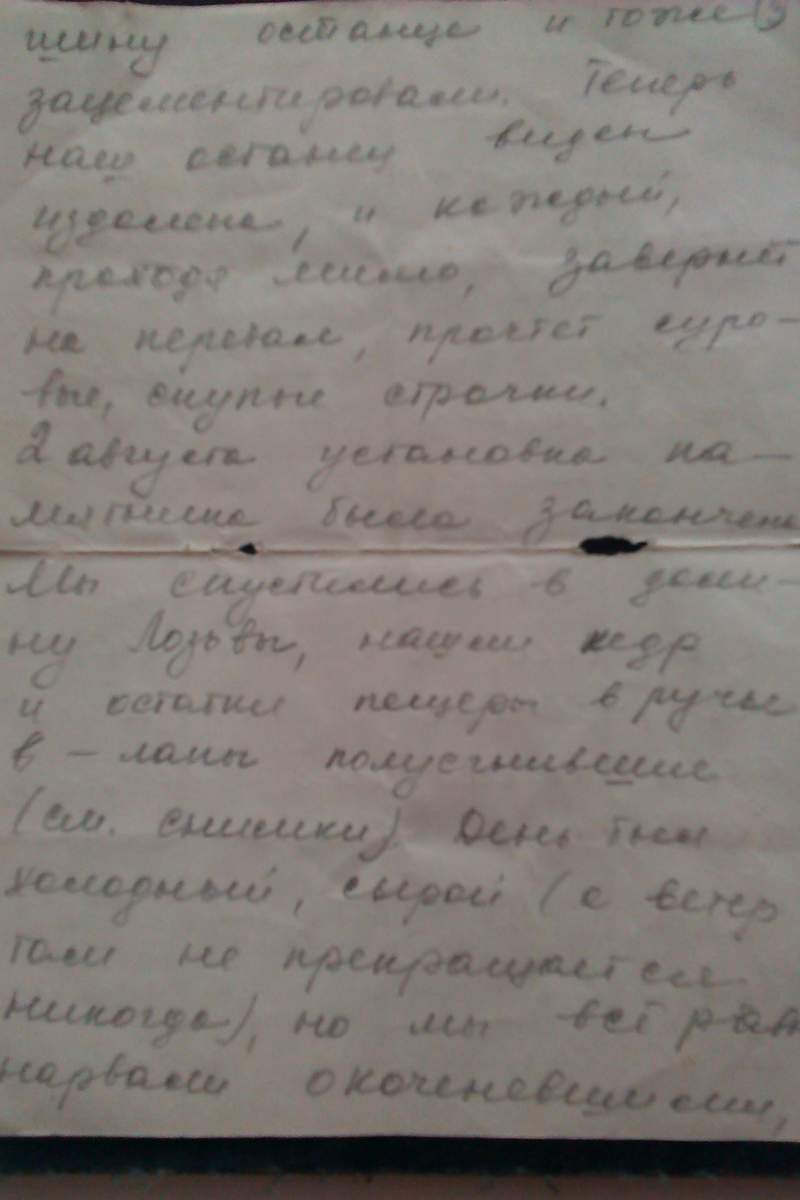 шину останца и тоже 3
зацементировали. Теперь
наш останец виден
издалека, и каждый,
проходя мимо, завернет
на перевал, прочтет суро-
вые, скупые строчки.
2 августа установка па-
мятника была закончена
Мы спустились в доли-
ну Лозьвы, нашли кедр
и остатки пещеры в ручье
в - лапы полусгнившие
(см. снимки). День был
холодный, сырой (а ветер
там не прекращается
никогда), но мы всё рав
нарвали окоченевшими,